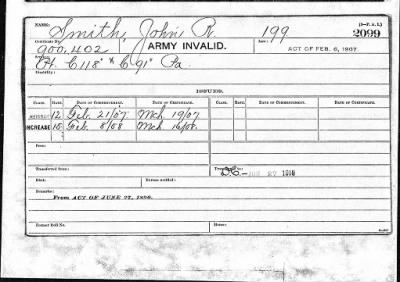 NAME: Smith, John R. 199 (3-P. A. I.)
Certificate No. Law: 2099
900,402 ARMY INVALID. ACT OF FEB. 6, 1907
H. C 118" & C 91" Pa.
Disability:
ISSUES.
CLASS. RATE. DATE OF COMMENCEMENT. DATE OF CERTIFICATE. CLASS. RATE. DATE OF COMMENCEMENT. DATE OF CERTIFICATE.
12 Feb. 21/07 Mch 19/07
INCREASE 15 Feb. 8/08 Mch 16/08.
From:
Transferred from: Transferred to:
27 1908
Died: Bureau notified:
Remarks:
From ACT OF JUNE 27, 1890.
Former Roll No. Home: